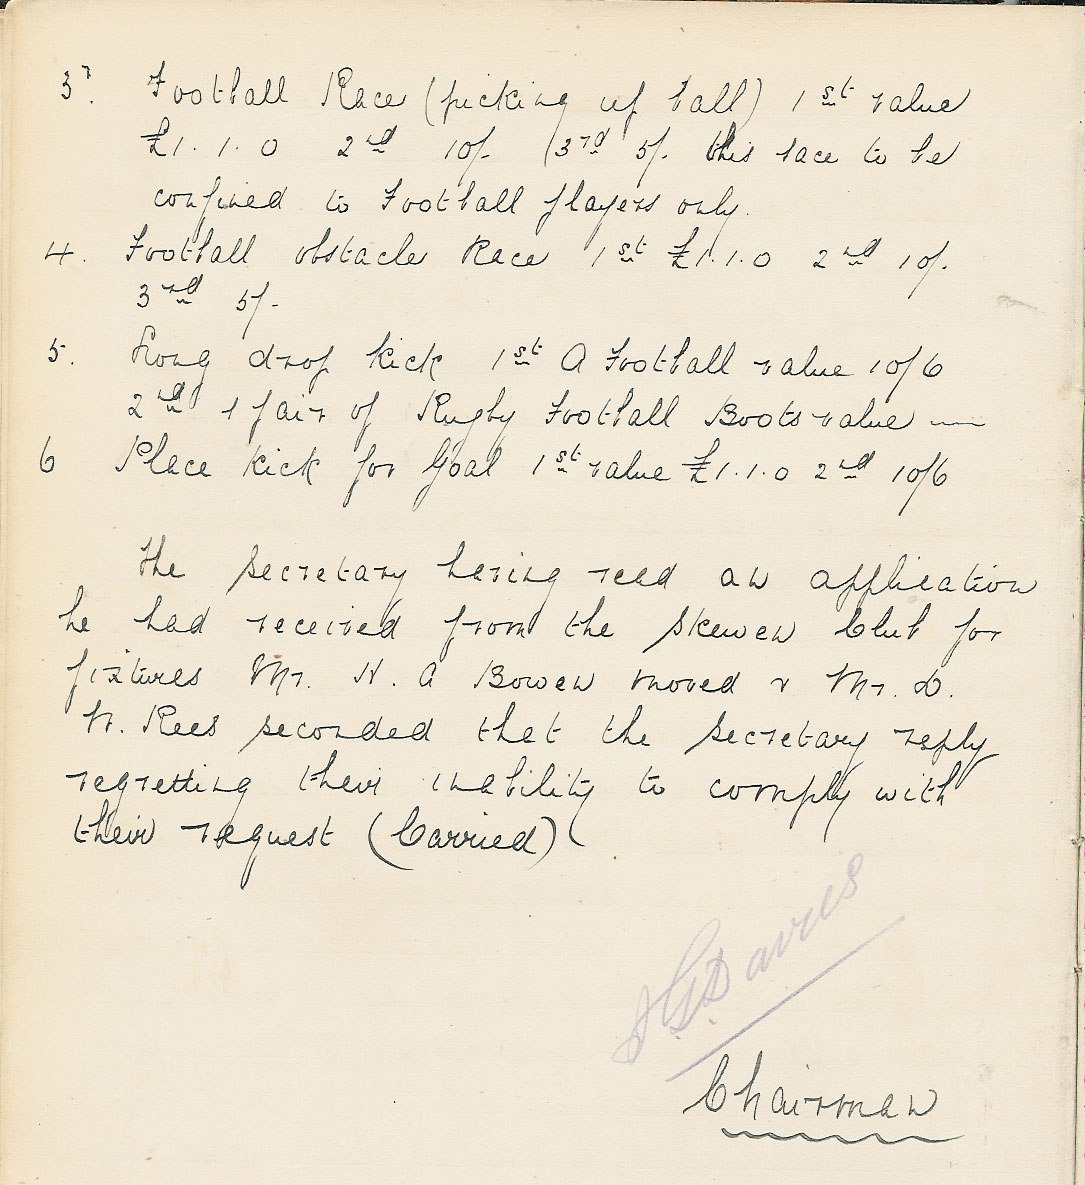 3. Football Race (picking up ball) 1st value
£1.1.0 2nd 10/- (3rd 5/- this race to be
confined to Football players only.
4. Football obstacle Race 1st £1.1.0 2nd 10/-
3rd 5/-
5. Long drop kick 1st A Football value 10/6
2nd 1 pair of Rugby Football Boots value —
6 Place kick for Goal 1st value £1.1.0 2nd 10/6
The Secretary having read an application
he had received from the Skewen Club for
fixtures Mr. H. A Bowen moved & Mr. D.
W. Rees seconded that the Secretary reply
regretting their inability to comply with
their request (Carried)
J.G. Davies
Chairman